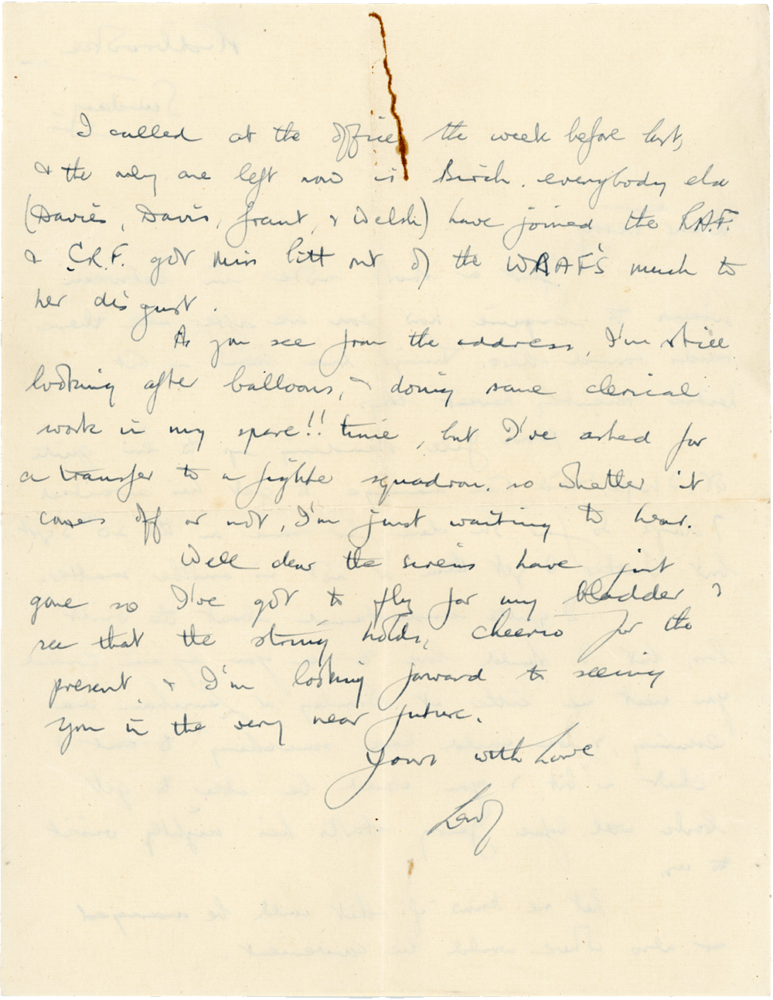 I called at the office the week before last,
& the only one left now is Birch. everybody else
(Davies, Davis, Grant, & Welsh) have joined the R.A.F.
& C.R.F. got Miss Pitt out of the WRAFS much to
her disgust.
As you see from the address, I'm still
looking after balloons, & doing some clerical
work in my spare!! time, but I've asked for
a transfer to a fighter squadron. so whether it
comes off or not, I'm just waiting to hear.
Well dear the sirens have just
gone so I've got to fly for my bladder &
see that the string holds, cheerio for the
present & I'm looking forward to seeing
you in the very near future.
Yours with Love